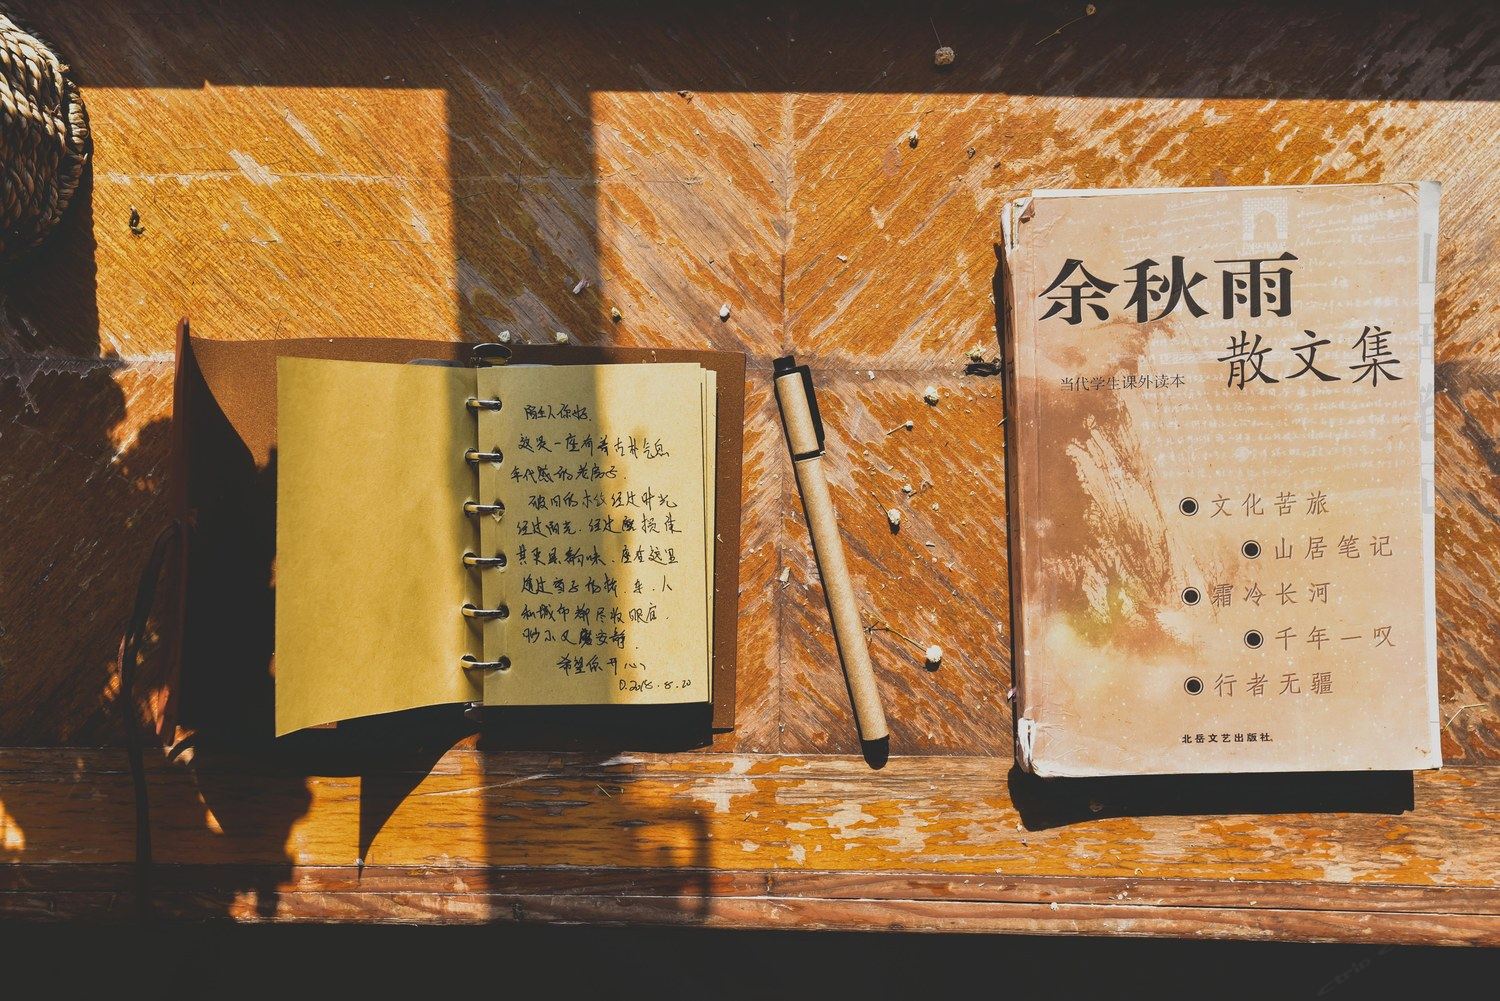 陌生人你好.
这是一座有着古朴气息
年代感的老房子.
破旧的木纹经过时光
经过阳光.经过磨损
其更显韵味.座在这里
透过窗子
和城市都尽收眼底.
吵小又安静.
希望你开心
8.20
余秋雨
散文集
当代学生课外读本
文化苦旅
山居笔记
霜冷长河
千年一叹
行者无疆
北岳文艺出版社